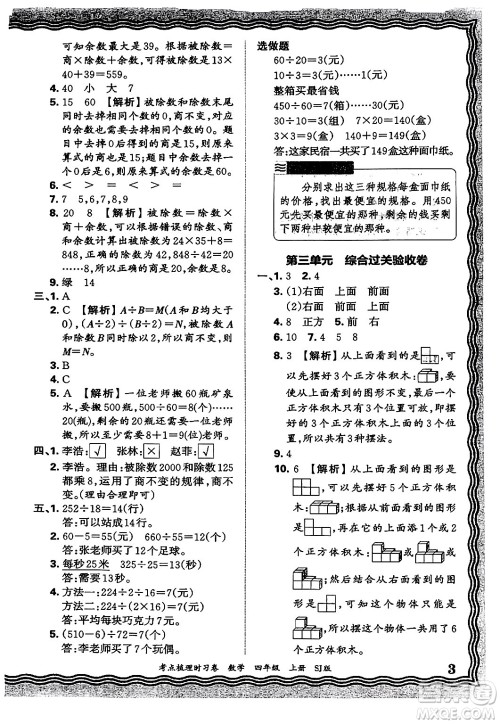 可知余数最大是39。根据被除数=
商×除数+余数,得被除数为
13×40+39=559。
4. 40 小 大 7
5. 15 60 【解析】被除数和除数末尾
同时去掉相同个数的0后,商不变,
但余数变了,去掉相同个数的0后
的余数需要再添上去掉相同个数
的0后才是原来算式的余数。由
题意,原来算式的商是15,所以原
来算式的商也是15,余数6后面添
上一个0后是6个十,即余数是60。
6. < > = > = >
7. 7 5 8 9 8 9
8. 20 8 【解析】由抄错的算式可知
除数为(848-8)÷42=20。按照
正确的除数为42,848÷42=20……
8,所以正确的商为20,余数为8。
9. 绿 14
三、1. A
2. C 【解析】A÷B=M(A和B均大于
0),被除数A和除数B同时除以2,
商不变,即(A÷2)÷(B÷2)=M。
3. B
4. C
5. A 【解析】一位老师搬60瓶矿泉
水,要搬500瓶,500÷60=8(位)……
20(瓶),剩余的20瓶还需要1位老
师搬,8+1=9(位),至少需要9位老师。
四、1. 李浩:√ 张林:× 赵菲:√
2. 李浩。理由:被除数2000和除数125
都乘8,运用了商不变的规律,商不
变。(理由合理即可)
五、1. 252÷14=18(行)
答:可以站18行。
2. 60-5=55(元) 660÷55=12(个)
答:张老师买了12个足球。
3. 每秒25米 325÷25=13(秒)
答:需要13秒。
4. 方法一:224÷2÷16=7(元)
方法二:224÷(2×16)=7(元)
答:平均每块巧克力7元。
答:李老师买了7个玩偶。
选做题
60÷20=3(元)
10÷3=3(元)……1(元)
整箱买最省钱
450÷60=7(箱)……30(元)
30÷10=3(组) 7×20=140(盒)
3×3=9(盒) 140+9=149(盒)
答:这家民宿一共买了149盒这种面巾纸。
分别求出这三种规格每盒面巾纸
的价格,找出最便宜的规格。用450
元先买最便宜的那种,剩余的钱买剩
下两种中最便宜的那种。
第三单元 综合过关验收卷
一、1. 3 2. 4
3. (1)右面 上面 前面
(2)上面 右面 前面
4. 8 正方 5. 前 右
6. 10 7. 4 5 8
8. 3 【解析】从上面看到的是
可以先摆好3个正方体积木:
从上面看到的图形不变,则最后一
个正方体积木只有3个位置可放,
即共有3种摆法:
9. 4
10. 6 【解析】从上面看到的图形是
可以先摆好5个正方体积
木:,再在它的上面添1个
正方体积木:
;然后结合从右面看到的
图形是,则摆这个物体一共用
了6个正方体积木。
考点梳理时习卷 数学 四年级 上册 SJ版
3